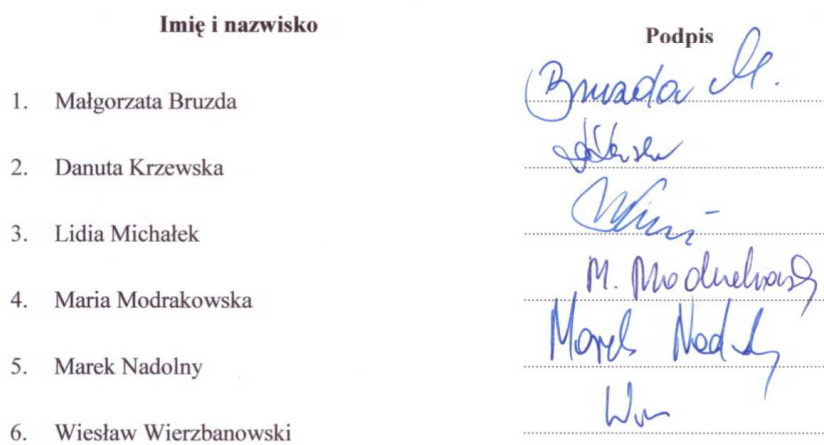 Imię i nazwisko Podpis
1. Małgorzata Bruzda Bruzda M.
2. Danuta Krzewska
3. Lidia Michałek
4. Maria Modrakowska M. Modrakowska
5. Marek Nadolny Marek Nadolny
6. Wiesław Wierzbanowski